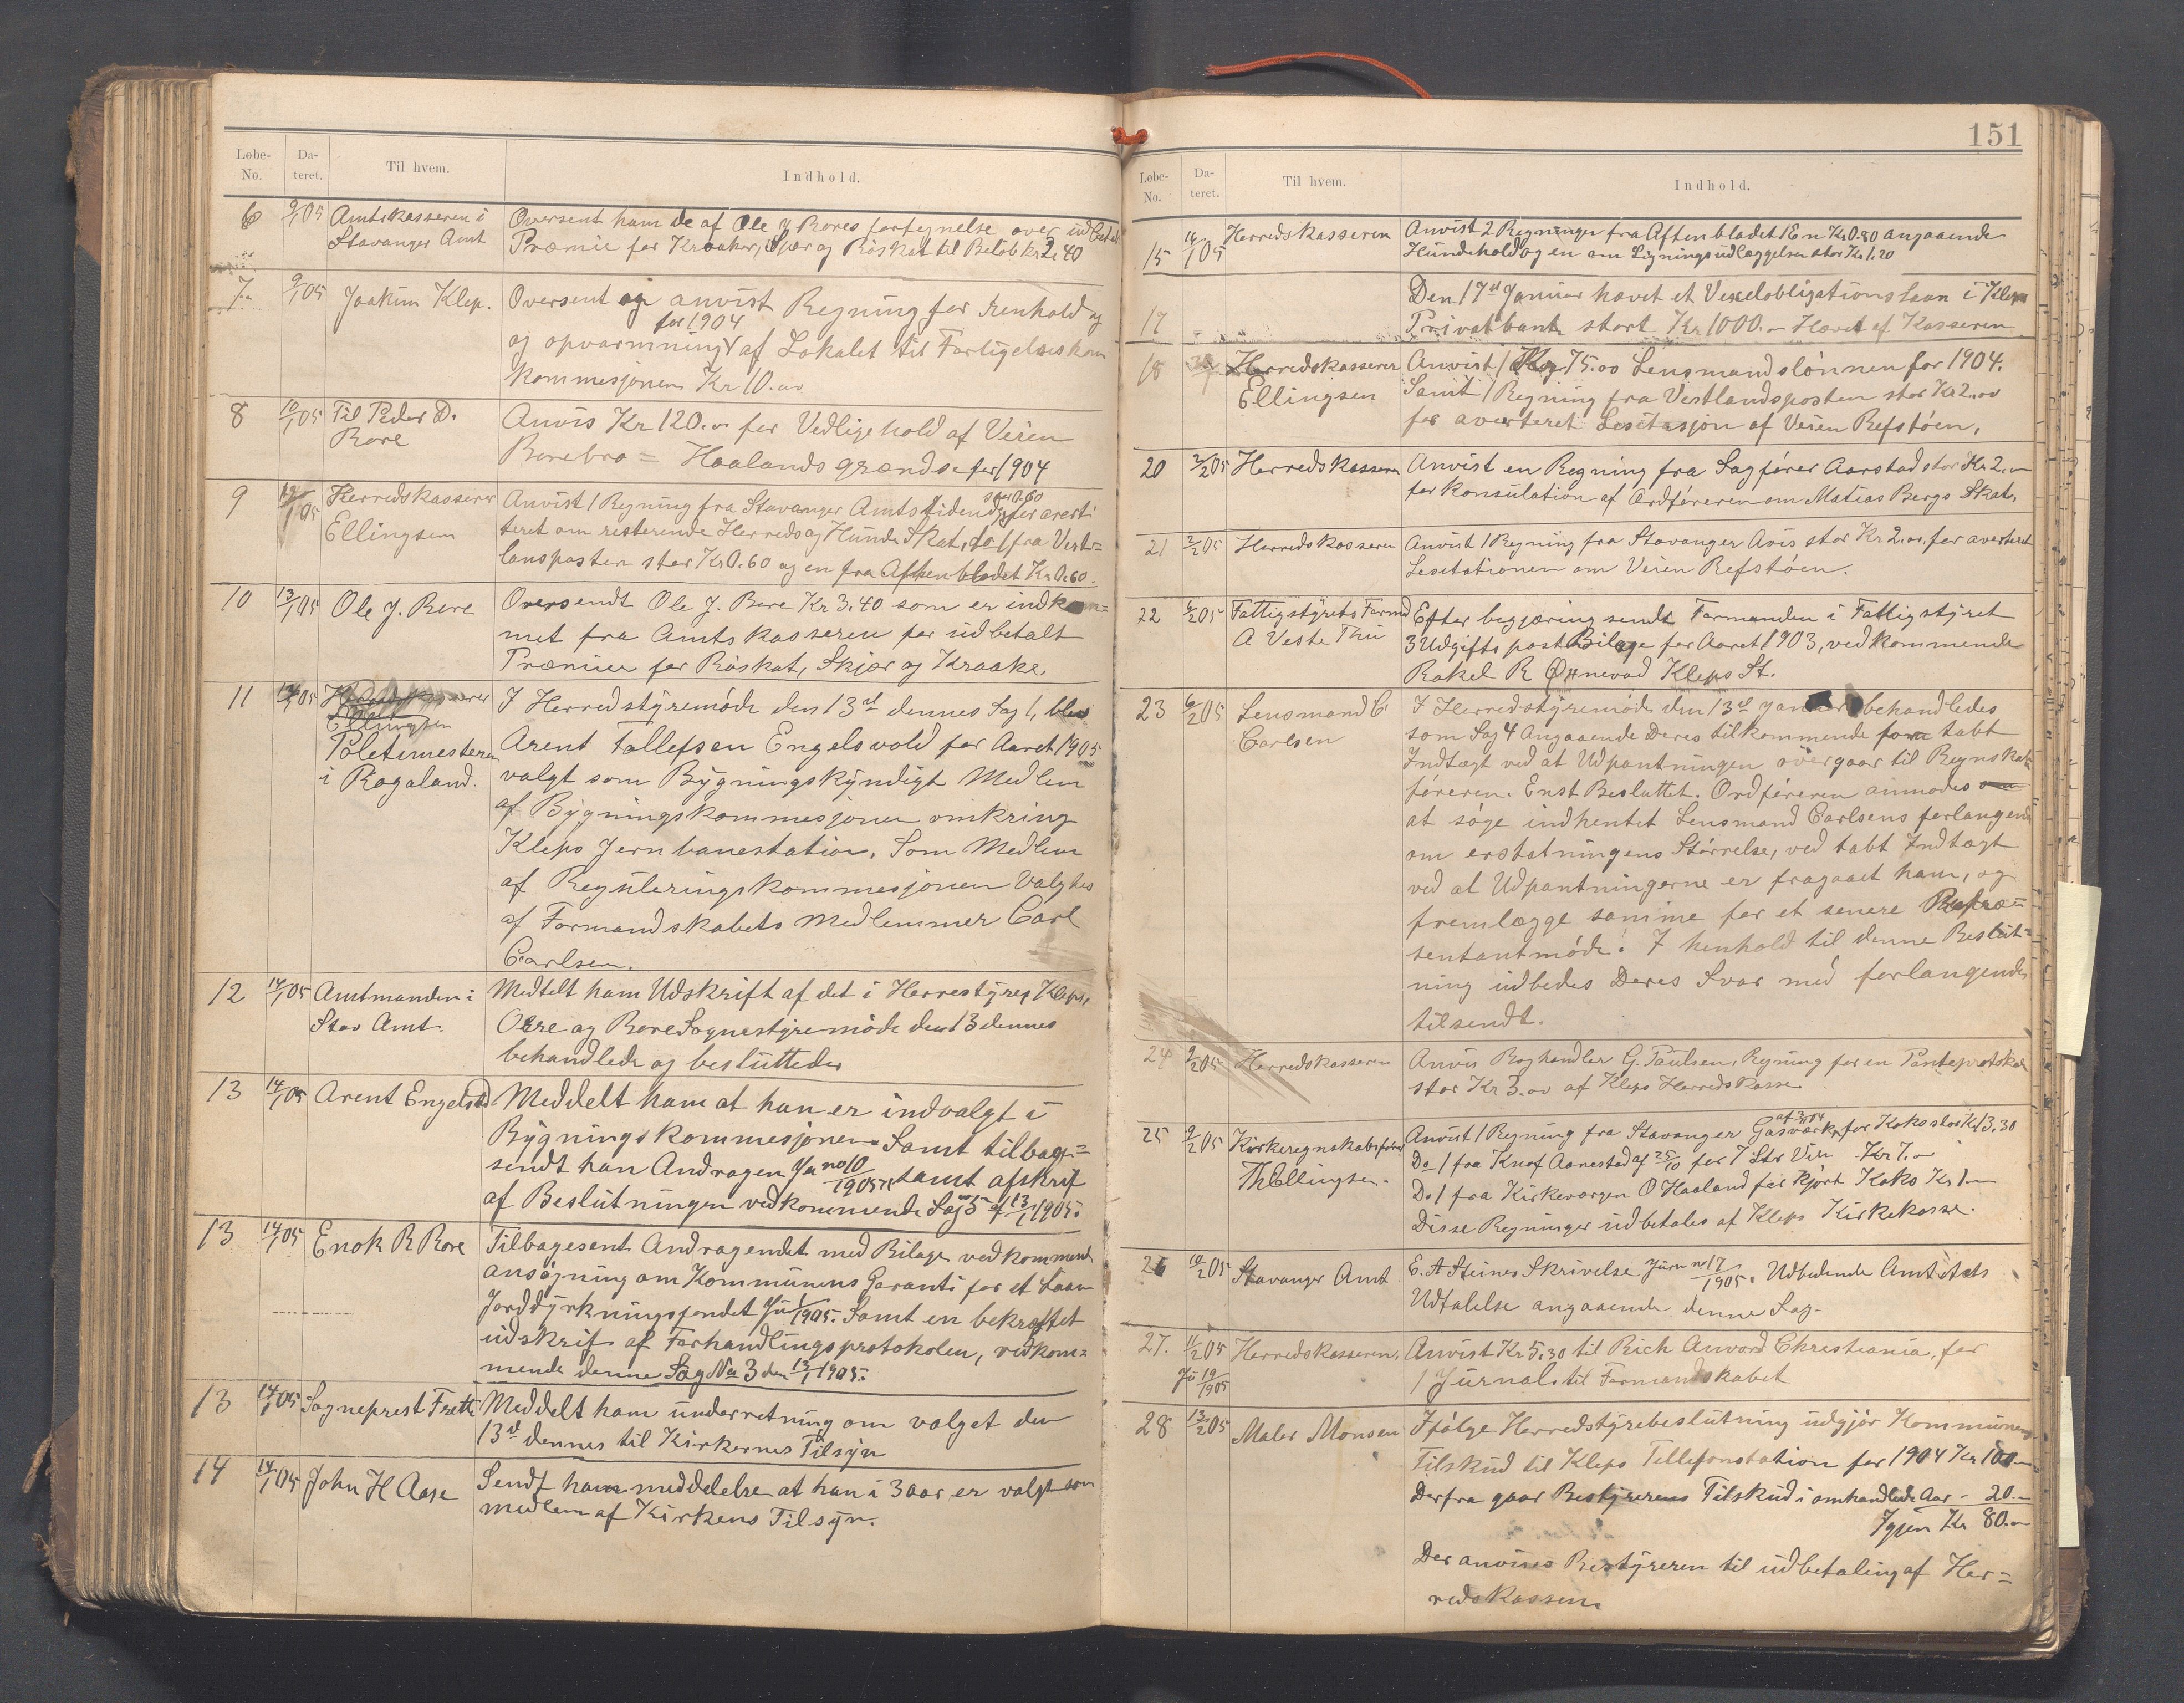 Løbe-
No.
Da-
teret.
Til hvem.
Indhold.
6 9/1 05 Amtskasseren i
Stavanger Amt
Oversent ham de af Ole J Bores fortegnelse over udbetalt
Præmie for Kraaker, Skjær og Röskat til Belöb kr 2.40
7 9/1 05 Joakim Klep.
Oversent og anvist Regning for renhold og
for 1904
og opvarmning af Lokalet til Forligelseskom
kommesjonen Kr 10.00
8 10/1 05 Til Peder D.
Bore
Anvis Kr 120.00 for Vedligehold af Veien
Borebro = Haalands grændse for 1904
9 05 Herredskasserer
Ellingsen
stor 0.60
Anvist 1 Regning fra Stavanger Amtstidende for averti
teret om resterende Herreds og Hunde Skat, do 1 fra Vest-
lansposten stor Kr 0.60 og en fra Aftenbladet Kr 0.60.
10 13/1 05 Ole J. Bore
Oversendt Ole J. Bore Kr 3.40 som er indkom=
met fra Amtskasseren for udbetalt
Præmie for Röskat, Skjær og Kraake.
11 14/1 05 Herredskasserer
Ellingsen
Poletimesteren
i Rogaland.
I Herredstyremöde den 13de dennes Sag 1, blev
Arent Tallefsen Engelsvold for Aaret 1905
valgt som Bygningskyndigt Medlem
af Bygningskommesjonen omkring
Kleps Jernbanestation. Som Medlem
af Reguleringskommesjonen valgtes
af Formandskabets Medlemmer Carl
Carlsen.
12 14/1 05 Amtmanden i
Stav Amt.
Medtelt ham Udskrift af det i Herrestyrer Kleps,
Orre og Bore Sognestyremöde den 13 dennes
behandlede og besluttede
13 14/1 05 Arent Engelsvd
Meddelt ham at han er indvalgt i
Bygningskommesjonen. Samt tilbage=
sendt han Andragen Ju no 10/1905, samt afskrif
af Beslutningen vedkommende Sag 5 af 13/1 1905.
13 14/1 05 Enok R Bore
Tilbagesent Andragendet med Bilage vedkommende
ansögning om Kommunens Garanti for et Laan
Jorddyrkningsfondet Ju 1/1905. Samt en bekræftet
udskrif af Forhandlingsprotokolen, vedkom=
mende denne Sag No 3 den 13/1 1905.
13 14/1 05 Sogneprest Frette
Meddelt ham underretning om valget den
13de dennes til Kirkernes Tilsyn
14 14/1 05 John H Aase
Sendt ham meddelelse at han i 3 aar er valgt som
medlem af Kirkens Tilsyn.
151
Løbe-
No.
Da-
teret.
Til hvem.
Indhold.
15 14/1 05 Herredskasseren
Anvist 2 Regninger fra Aftenbladet 1 En Kr 0.80 angaaende
Hundehold og en om Ligningsudlæggelsen stor Kr 1.20
17
Den 17de Januar hævet et Vexelobligationslaan i Klep
Privatbank stort Kr 1000.- Hævet af Kasseren
18 Herredskasserer
Ellingsen
Anvist 1 Reg 75.00 Lensmandslönnen for 1904.
Samt 1 Regning fra Vestlandsposten stor Kr 2.00
for averteret Lesitasjon af Veien Refstöen.
20 2/2 05 Herredskasseren
Anvist en Regning fra Sagförer Aarstad stor Kr 2.00
for konsulation af Ordföreren om Matias Bergs Skat.
21 2/2 05 Herredskasseren
Anvist 1 Regning fra Stavanger Avis stor Kr 2.00. for averteret
Lesitationen om Veien Refstöen.
22 6/2 05 Fattigstyrets Formd
A Veste Thu
Efter begjæring sendt Formanden i Fattigstyret
3 Udgiftspost Bilage for Aaret 1903, vedkommende
Rakel R Örnevad Kleps St.
23 6/2 05 Lensmand C
Carlsen
I Herredstyremöde den 13de januar behandledes
som Sag 4 Angaaende Deres tilkommende for tabt
Indtægt ved at Udpantningen övergaar til Regnskabs
föreren. Enst Besluttet. Ordföreren anmodes om
at söge indhentet Lensmand Carlsens forlangende
om erstatningens Störrelse, ved tabt Indtægt
ved at Udpantningerne er fragaaet ham, og
fremlægge samme for et senere Repræ=
sentantmöde. I henhold til denne Beslut=
ning udbedes Deres Svar med forlangende
tilsendt.
24 9/2 05 Herredskasseren
Anvis Boghandler G. Paulsen, Regning for en Panteprotokol
stor Kr 3.00 af Kleps Herredskasse
25 9/2 05 Kirkeregnskabsförer
Th Ellingsen.
Anvist 1 Regning fra Stavanger Gasværk for Koks stor Kr 13.30
Do 1 fra Knof Aanestad af 25/10 for 7 Ltr Vin Kr 7.-
Do 1 fra Kirkevægen O Haaland for kjört Koks Kr 1.-
Disse Regninger udbetales af Kleps Kirkekasse.
26 10/2 05 Stavanger Amt
E. A Steines Skrivelse Jurn no 17/1905. Udbedende Amtets
Udtalelse angaaende denne Sag.
27. 11/2 05 Herredskasseren.
Ju 19/1905
Anvist Kr 5.30 til Rich Anvord Chrestiania, for
1 Jurnal til Formandskabet
28 13/2 05 Maler Monsen
Ifölge Herredstyrebeslutning udgjör Kommunens
Tilskud til Kleps Tellefonstation for 1904 Kr 100.-
Derfra gaar Bestyrerens Tilskud i omhandlede Aar - 20.-
Igjen Kr 80.-
Der anvises Bestyreren til udbetaling af Her=
redskassen.